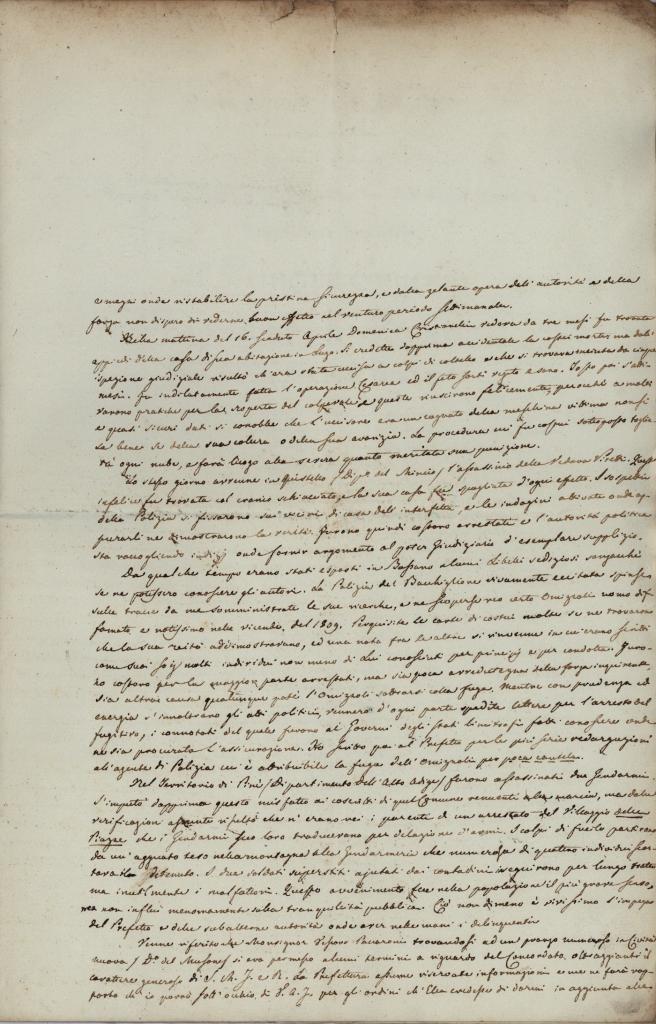 e mezzi onde ristabilire la pristina sicurezza, e dalla zelante opera dell'autorità e della
forza non dispero di vederne buon effetto nel venturo periodo settimanale.
Nella mattina del 16. scaduto Aprile Domenica vedova da tre mesi fu trovata
appiedi della casa di sua abitazione in Lugo. Si credette dapprima accidentale la costei morte, ma dall'
ispezione giudiziale risultò ch'era stata uccisa a colpi di coltello e che si trovava incinta da cinque
mesi. Fu indilatamente fatta l'operazione Cesarea ed il feto sortì vegeto e sano. Tosto poi s'atti-
varono pratiche per la scoperta del colpevole e queste riuscirono felicemente, perocchè a molti
e quasi sicuri dati si conobbe che l'uccisore era un cognato della meschina vittima non si
sa bene se della sua collera o della sua avarizia. La procedura cui fu costui sottoposto toglie
rà ogni nube, e farà luogo alla severa quanto meritata sua punizione.
Lo stesso giorno avvenne in Quistello /Dip.º del Mincio/ l'assassinio della Vedova
infelice fu trovata col cranio schiacciato e la sua casa fu spogliata d'ogni effetto. I sospetti
della Polizia si fissarono sui vicini di casa dell'interfetta, e le indagini attivate onde ap-
purarli ne dimostrarono la verità. Furono quindi costoro arrestati e l'autorità politica
sta raccogliendo indizj onde fornir argomento al poter Giudiziario d'esemplare supplizio.
Da qualche tempo erano stati esposti in Bassano alcuni libelli sediziosi senzacchè
se ne potessero conoscere gli autori. La Polizia del Bacchiglione vivamente eccitata spinse
sulle tracce da me somministrate le sue ricerche, e ne scoperse reo certo Omizzoli uomo dif-
famato e notissimo nelle vicende del 1809. Perquisite le carte di costui molte se ne trovarono
che la sua reità addimostravano, ed una nota tra le altre si rinvenne in cui erano scritti
come suoi socj molti individui non meno di lui conosciuti per principj e per condotta. Furo-
no costoro per la maggior parte arrestati, ma sia poca avvedutezza della forza inquirente,
sia altra causa qualunque potè l'Omizzoli sottrarsi colla fuga. Mentre con prudenza ed
energia s'inoltrano gli atti politici, vennero d'ogni parte spedite lettere per l'arresto del
fuggitivo, i connotati del quale furono ai Governi degli stati limitrofi fatti conoscere onde
ne sia procurata l'assicurazione. Ho scritto poi al Prefetto per le più serie redarguizioni
all'agente di Polizia cui è attribuibile la fuga dell'Omizzoli per poca cautela.
Nel Territorio di Pinè /Dipartimento dell'Alto Adige/ furono assassinati due Gendarmi.
S'imputò dapprima questo misfatto ai coscritti di quel Comune renuenti alla marcia, ma dalle
verificazioni assunte risultò che n'erano rei i parenti di un arrestato del Villaggio delle
Piazze che i Gendarmi seco loro traducevano per delazione d'armi. I colpi di fucile partirono
da un agguato teso nella montagna alla Gendarmeria che numerosa di quattro individui scor-
tava il detenuto. I due soldati superstiti ajutati dai contadini inseguirono per lungo tratto
ma inutilmente i malfattori. Questo avvenimento fece nella popolazione il più grave senso,
ma non influì menomamente sulla tranquillità pubblica. Ciò non dimeno è vivissimo l'impegno
del Prefetto e delle subalterne autorità onde aver nelle mani i delinquenti.
Venne riferito che Monsignor Vescovo trovandosi ad un pranzo numeroso in Civita
nuova /D.º del Musone/ si era permesso alcuni termini a riguardo del Concordato, oltraggianti il
carattere generoso di S. M. I. e R. La Prefettura assume riservate informazioni e me ne farà rap-
porto ch'io porrò sott'occhio di V. A. I. per gli ordini ch'Ella credesse di darmi in aggiunta alle